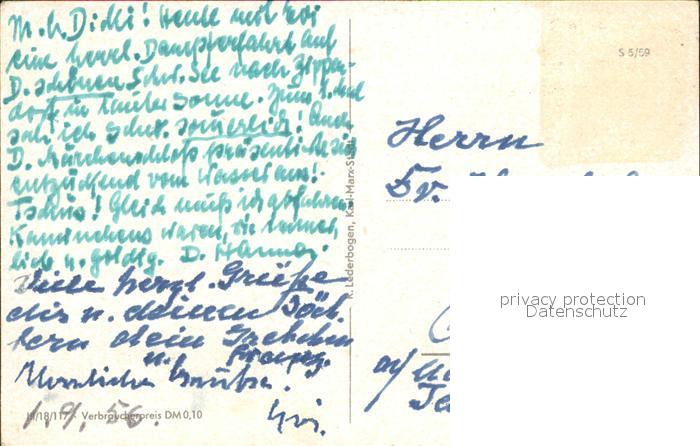 M. l. Dicki! Heute mit
eine herrl. Dampferfahrt auf
D. schönen Schw. See nach Zippen-
dorf in lauter Sonne. Zum 1. mal
sah ich Schw. sommerlich! Auch
D. Märchenschloss präsentierte sich
entzückend vom Wasser aus!
Tschüs! Gleich muß ich abfahren.
Kaninchens waren, wie immer,
lieb u. goldig. D. Hanna.
Viele herzl. Grüße
dir u. deinen Töch-
tern dein Gretchen
u. Franz.
Herzliche Grüße!
1.9.56.
III/18/117 · Verbraucherpreis DM 0,10
K. Lederbogen, Karl-Marx-
S 5/59
Herrn
Dr.
privacy protection
Datenschutz